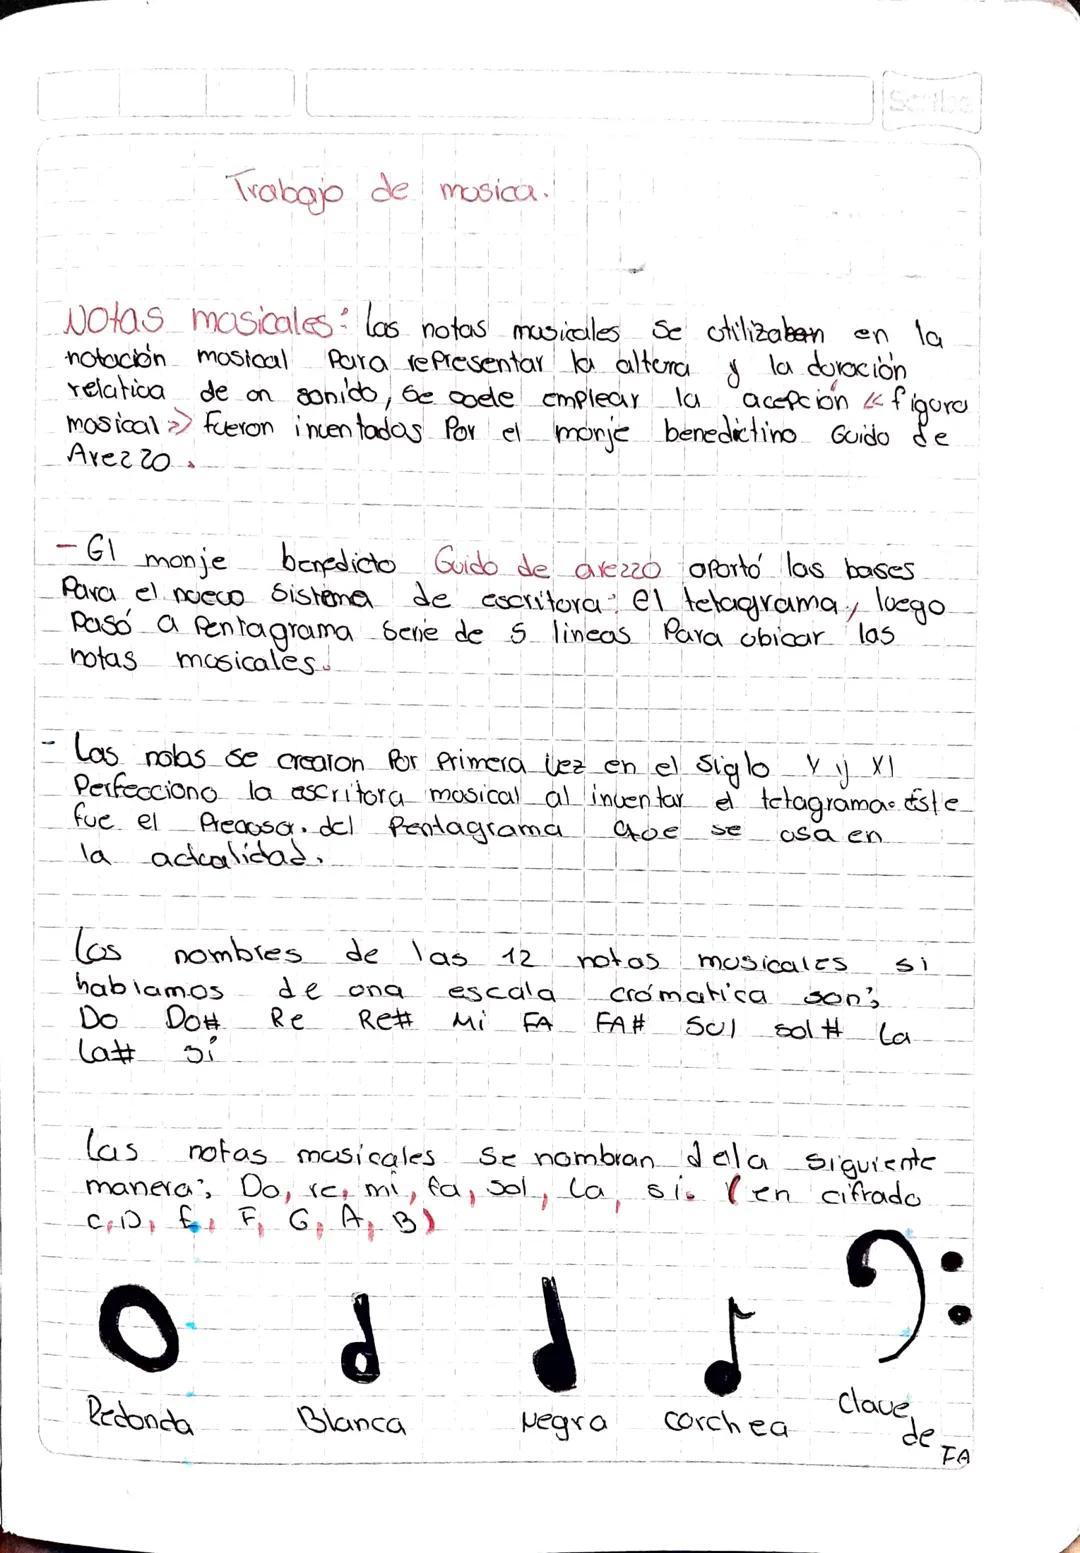 Scribe
Trabajo de musica.
Notas musicales: las notas musicales se utilizaban en la
notación musical Para representar la altura y la duración
relativa de un sonido, se suele emplear la acepción «figura
musical» fueron inventadas Por el monje benedictino Guido de
Arezzo.
- El monje benedicto Guido de arezzo aportó las bases
Para el nuevo sistema de escritura: el tetagrama, luego
Pasó a Pentagrama serie de 5 lineas Para ubicar las
notas musicales.
- Las notas se crearon Por Primera vez en el siglo V y XI
Perfecciono la escritura musical al inventar el tetagrama. Este
fue el del Pentagrama que se usa en
la actualidad.
Los nombres de las 12 notas musicales si
hablamos de una escala crómatica son:
Do Do# Re Re# Mi FA FA# Sol sol# La
La# si
Las notas musicales se nombran dela siguiente
manera: Do, re, mi, fa, sol, La, si. (en cifrado
C, D, E, F, G, A, B)
Redonda Blanca Negra corchea Clave
de
FA